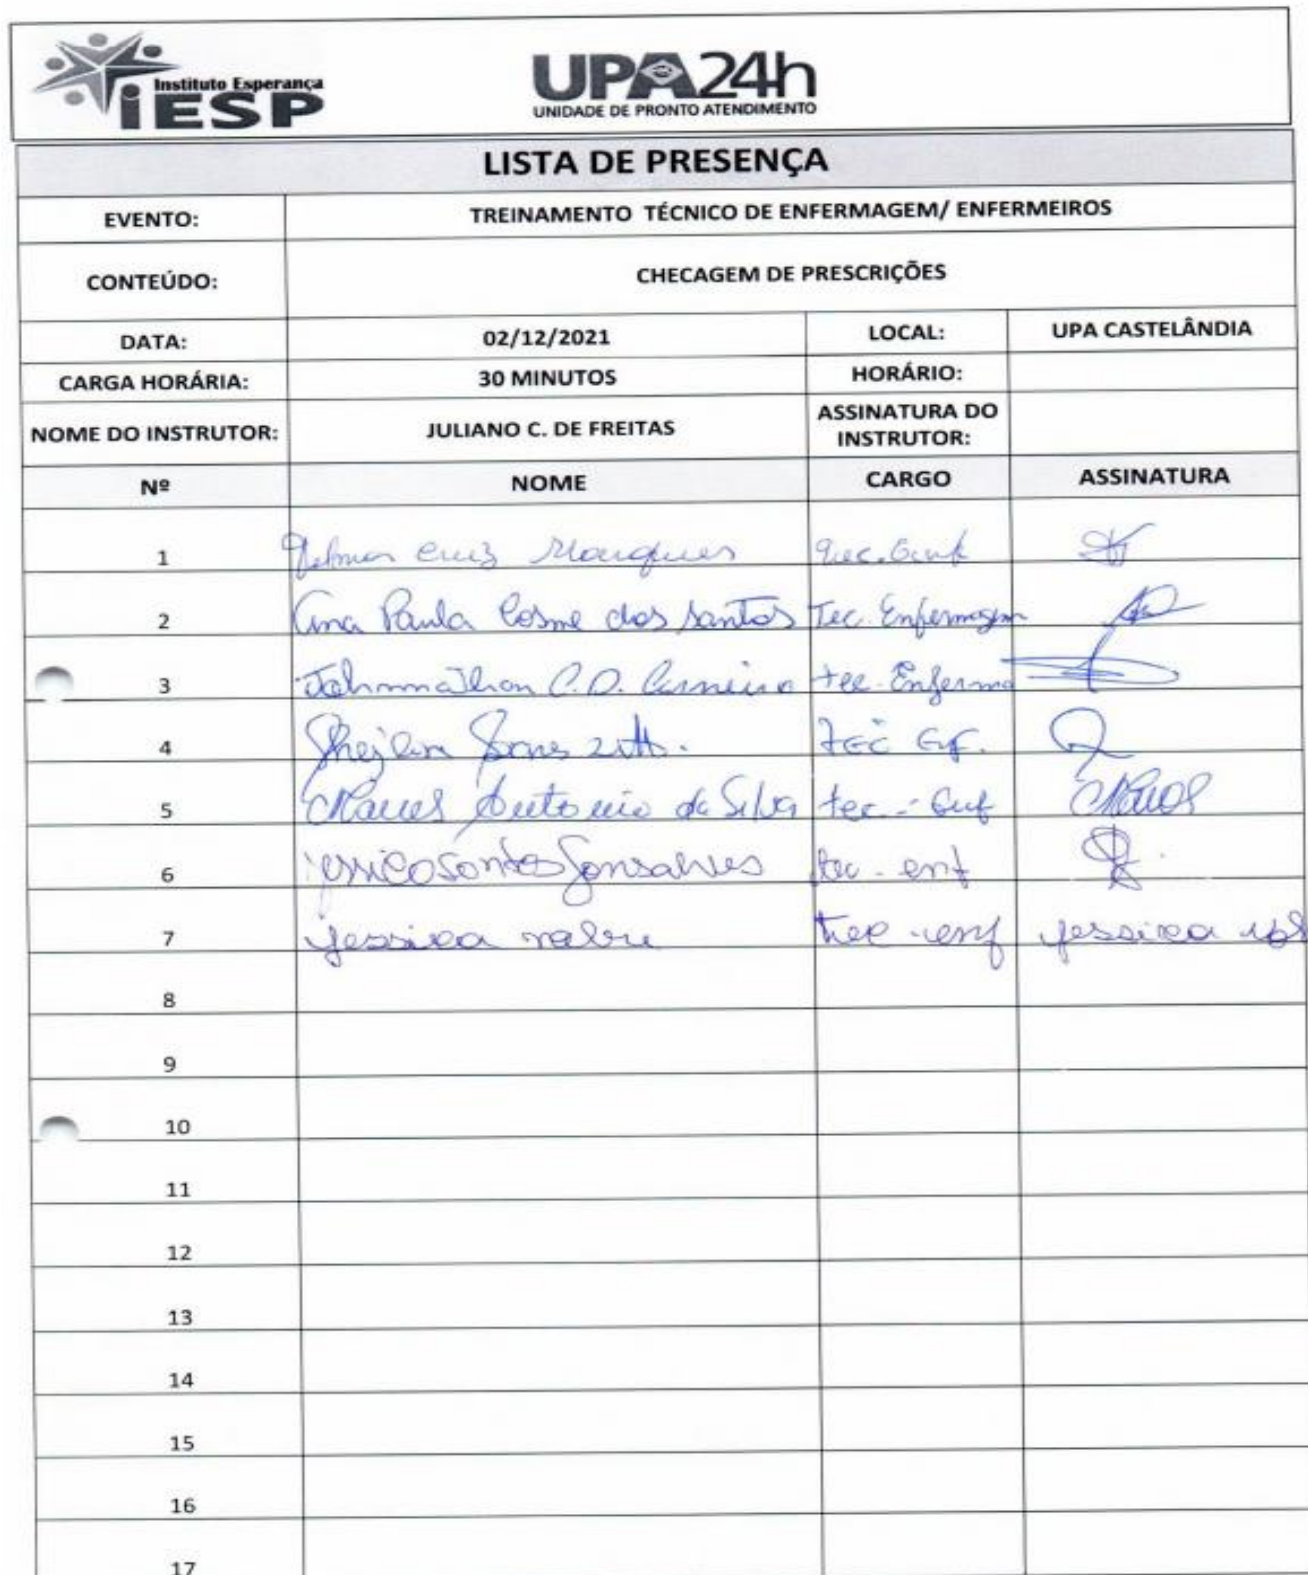 Instituto Esperança
iESP
UPA24h
UNIDADE DE PRONTO ATENDIMENTO
LISTA DE PRESENÇA
EVENTO: TREINAMENTO TÉCNICO DE ENFERMAGEM/ ENFERMEIROS
CONTEÚDO: CHECAGEM DE PRESCRIÇÕES
DATA: 02/12/2021 LOCAL: UPA CASTELÂNDIA
CARGA HORÁRIA: 30 MINUTOS HORÁRIO:
NOME DO INSTRUTOR: JULIANO C. DE FREITAS ASSINATURA DO INSTRUTOR:
Nº NOME CARGO ASSINATURA
1 Cruz Marques Tec. Enf
2 Ana Paula Cosme dos Santos Tec. Enfermagem
3 Johnnathan C.D. Carneiro tec. Enferma
4 tec Enf.
5 Antonio da Silva tec. Enf
6 Santos Gonsalves tec. enf
7 jessica tec enf jessica
8
9
10
11
12
13
14
15
16
17